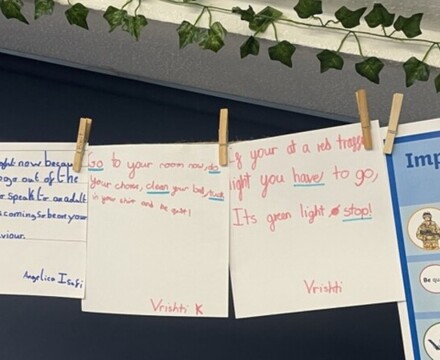 now because
out of the
speak to an adult
is coming, so be on your
viour.
Angelica Isofi
Go to your room now, do
your chose, clean your bed, tuck
in your chire and be quite!
Vrishti K
If your at a red traffic
light you have to go,
Its green light stop!
Vrishti
Imp
Be